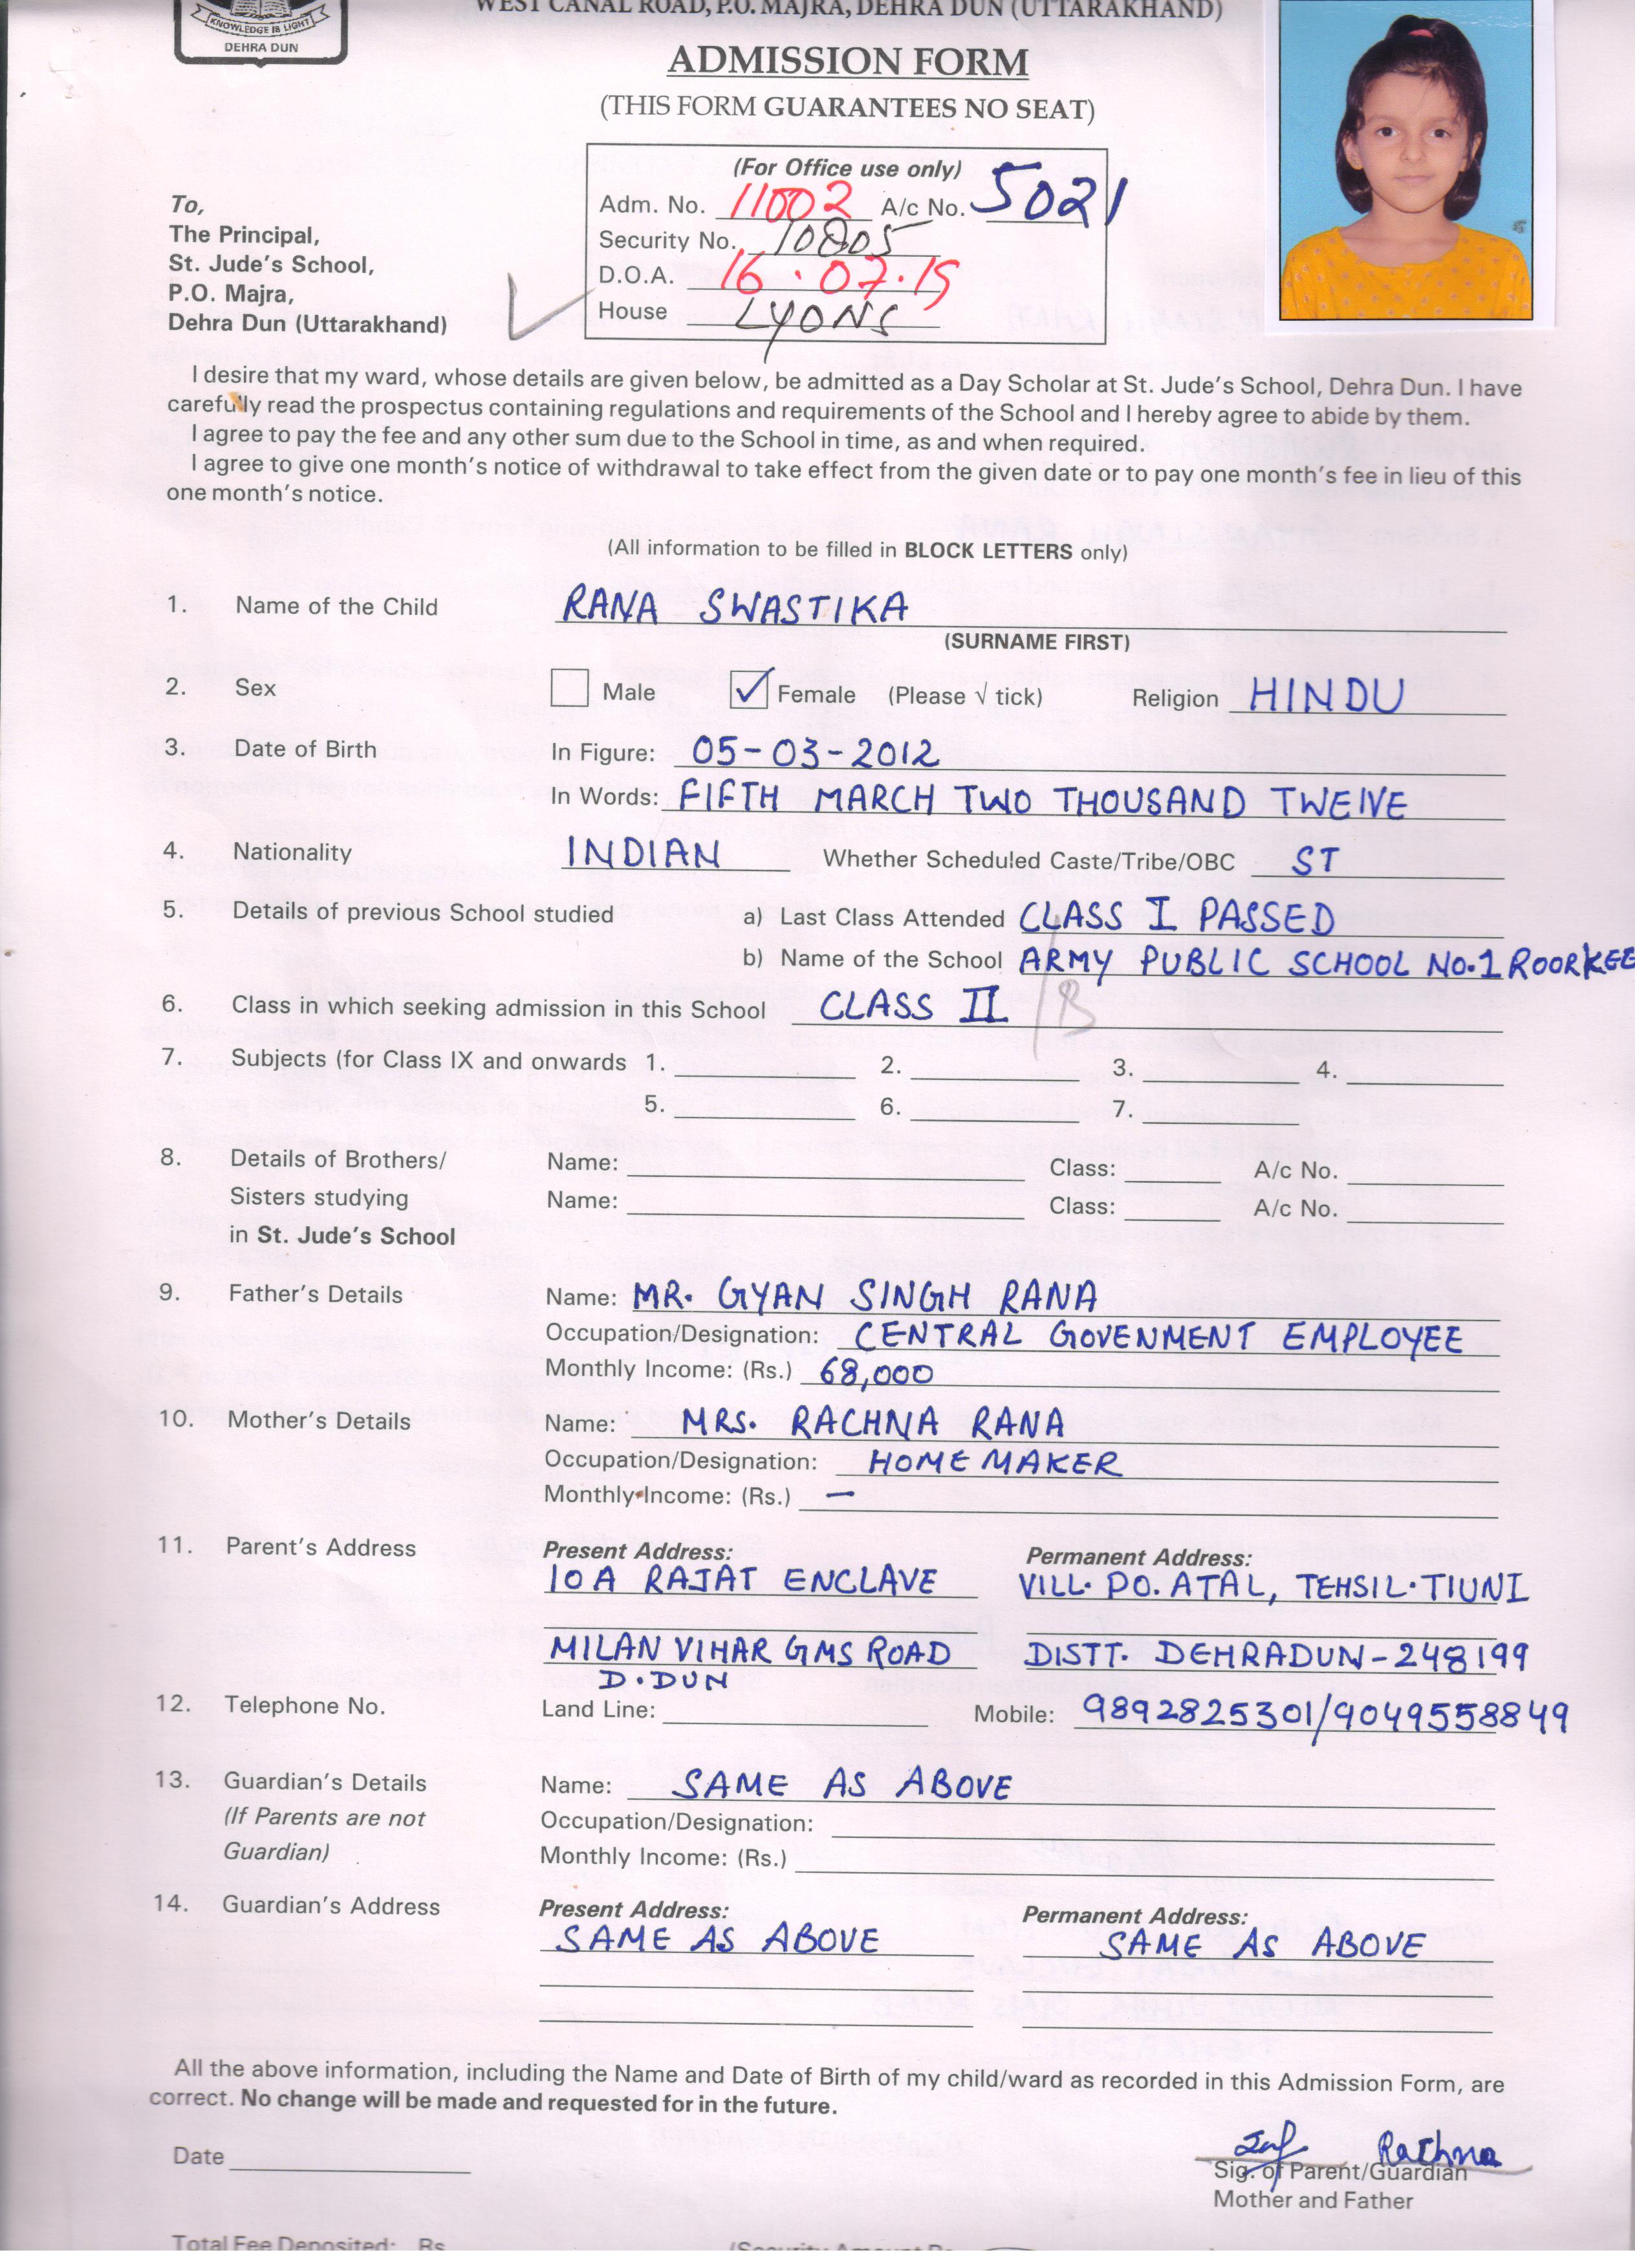 KNOWLEDGE IS LIGHT
DEHRA DUN
WEST CANAL ROAD, P.O. MAJRA, DEHRA DUN (UTTARAKHAND)
ADMISSION FORM
(THIS FORM GUARANTEES NO SEAT)
(For Office use only)
Adm. No. 11002 A/c No. 5021
Security No. 10805
D.O.A. 16.07.19
House LYONS
To,
The Principal,
St. Jude's School,
P.O. Majra,
Dehra Dun (Uttarakhand)
I desire that my ward, whose details are given below, be admitted as a Day Scholar at St. Jude's School, Dehra Dun. I have
carefully read the prospectus containing regulations and requirements of the School and I hereby agree to abide by them.
I agree to pay the fee and any other sum due to the School in time, as and when required.
I agree to give one month's notice of withdrawal to take effect from the given date or to pay one month's fee in lieu of this
one month's notice.
(All information to be filled in BLOCK LETTERS only)
1. Name of the Child RANA SWASTIKA
(SURNAME FIRST)
2. Sex Male ✓ Female (Please √ tick) Religion HINDU
3. Date of Birth In Figure: 05-03-2012
In Words: FIFTH MARCH TWO THOUSAND TWELVE
4. Nationality INDIAN Whether Scheduled Caste/Tribe/OBC ST
5. Details of previous School studied a) Last Class Attended CLASS I PASSED
b) Name of the School ARMY PUBLIC SCHOOL No.1 ROORKEE
6. Class in which seeking admission in this School CLASS II /B
7. Subjects (for Class IX and onwards 1. 2. 3. 4.
5. 6. 7.
8. Details of Brothers/ Name: Class: A/c No.
Sisters studying Name: Class: A/c No.
in St. Jude's School
9. Father's Details Name: MR. GYAN SINGH RANA
Occupation/Designation: CENTRAL GOVENMENT EMPLOYEE
Monthly Income: (Rs.) 68,000
10. Mother's Details Name: MRS. RACHNA RANA
Occupation/Designation: HOME MAKER
Monthly Income: (Rs.) –
11. Parent's Address Present Address: Permanent Address:
10 A RAJAT ENCLAVE VILL. PO. ATAL, TEHSIL. TIUNI
MILAN VIHAR GMS ROAD DISTT. DEHRADUN-248199
D.DUN
12. Telephone No. Land Line: Mobile: 9892825301/9049558849
13. Guardian's Details Name: SAME AS ABOVE
(If Parents are not Occupation/Designation:
Guardian) Monthly Income: (Rs.)
14. Guardian's Address Present Address: Permanent Address:
SAME AS ABOVE SAME AS ABOVE
All the above information, including the Name and Date of Birth of my child/ward as recorded in this Admission Form, are
correct. No change will be made and requested for in the future.
Rachna
Date Sig. of Parent/Guardian
Mother and Father
Total Fee Deposited: Rs